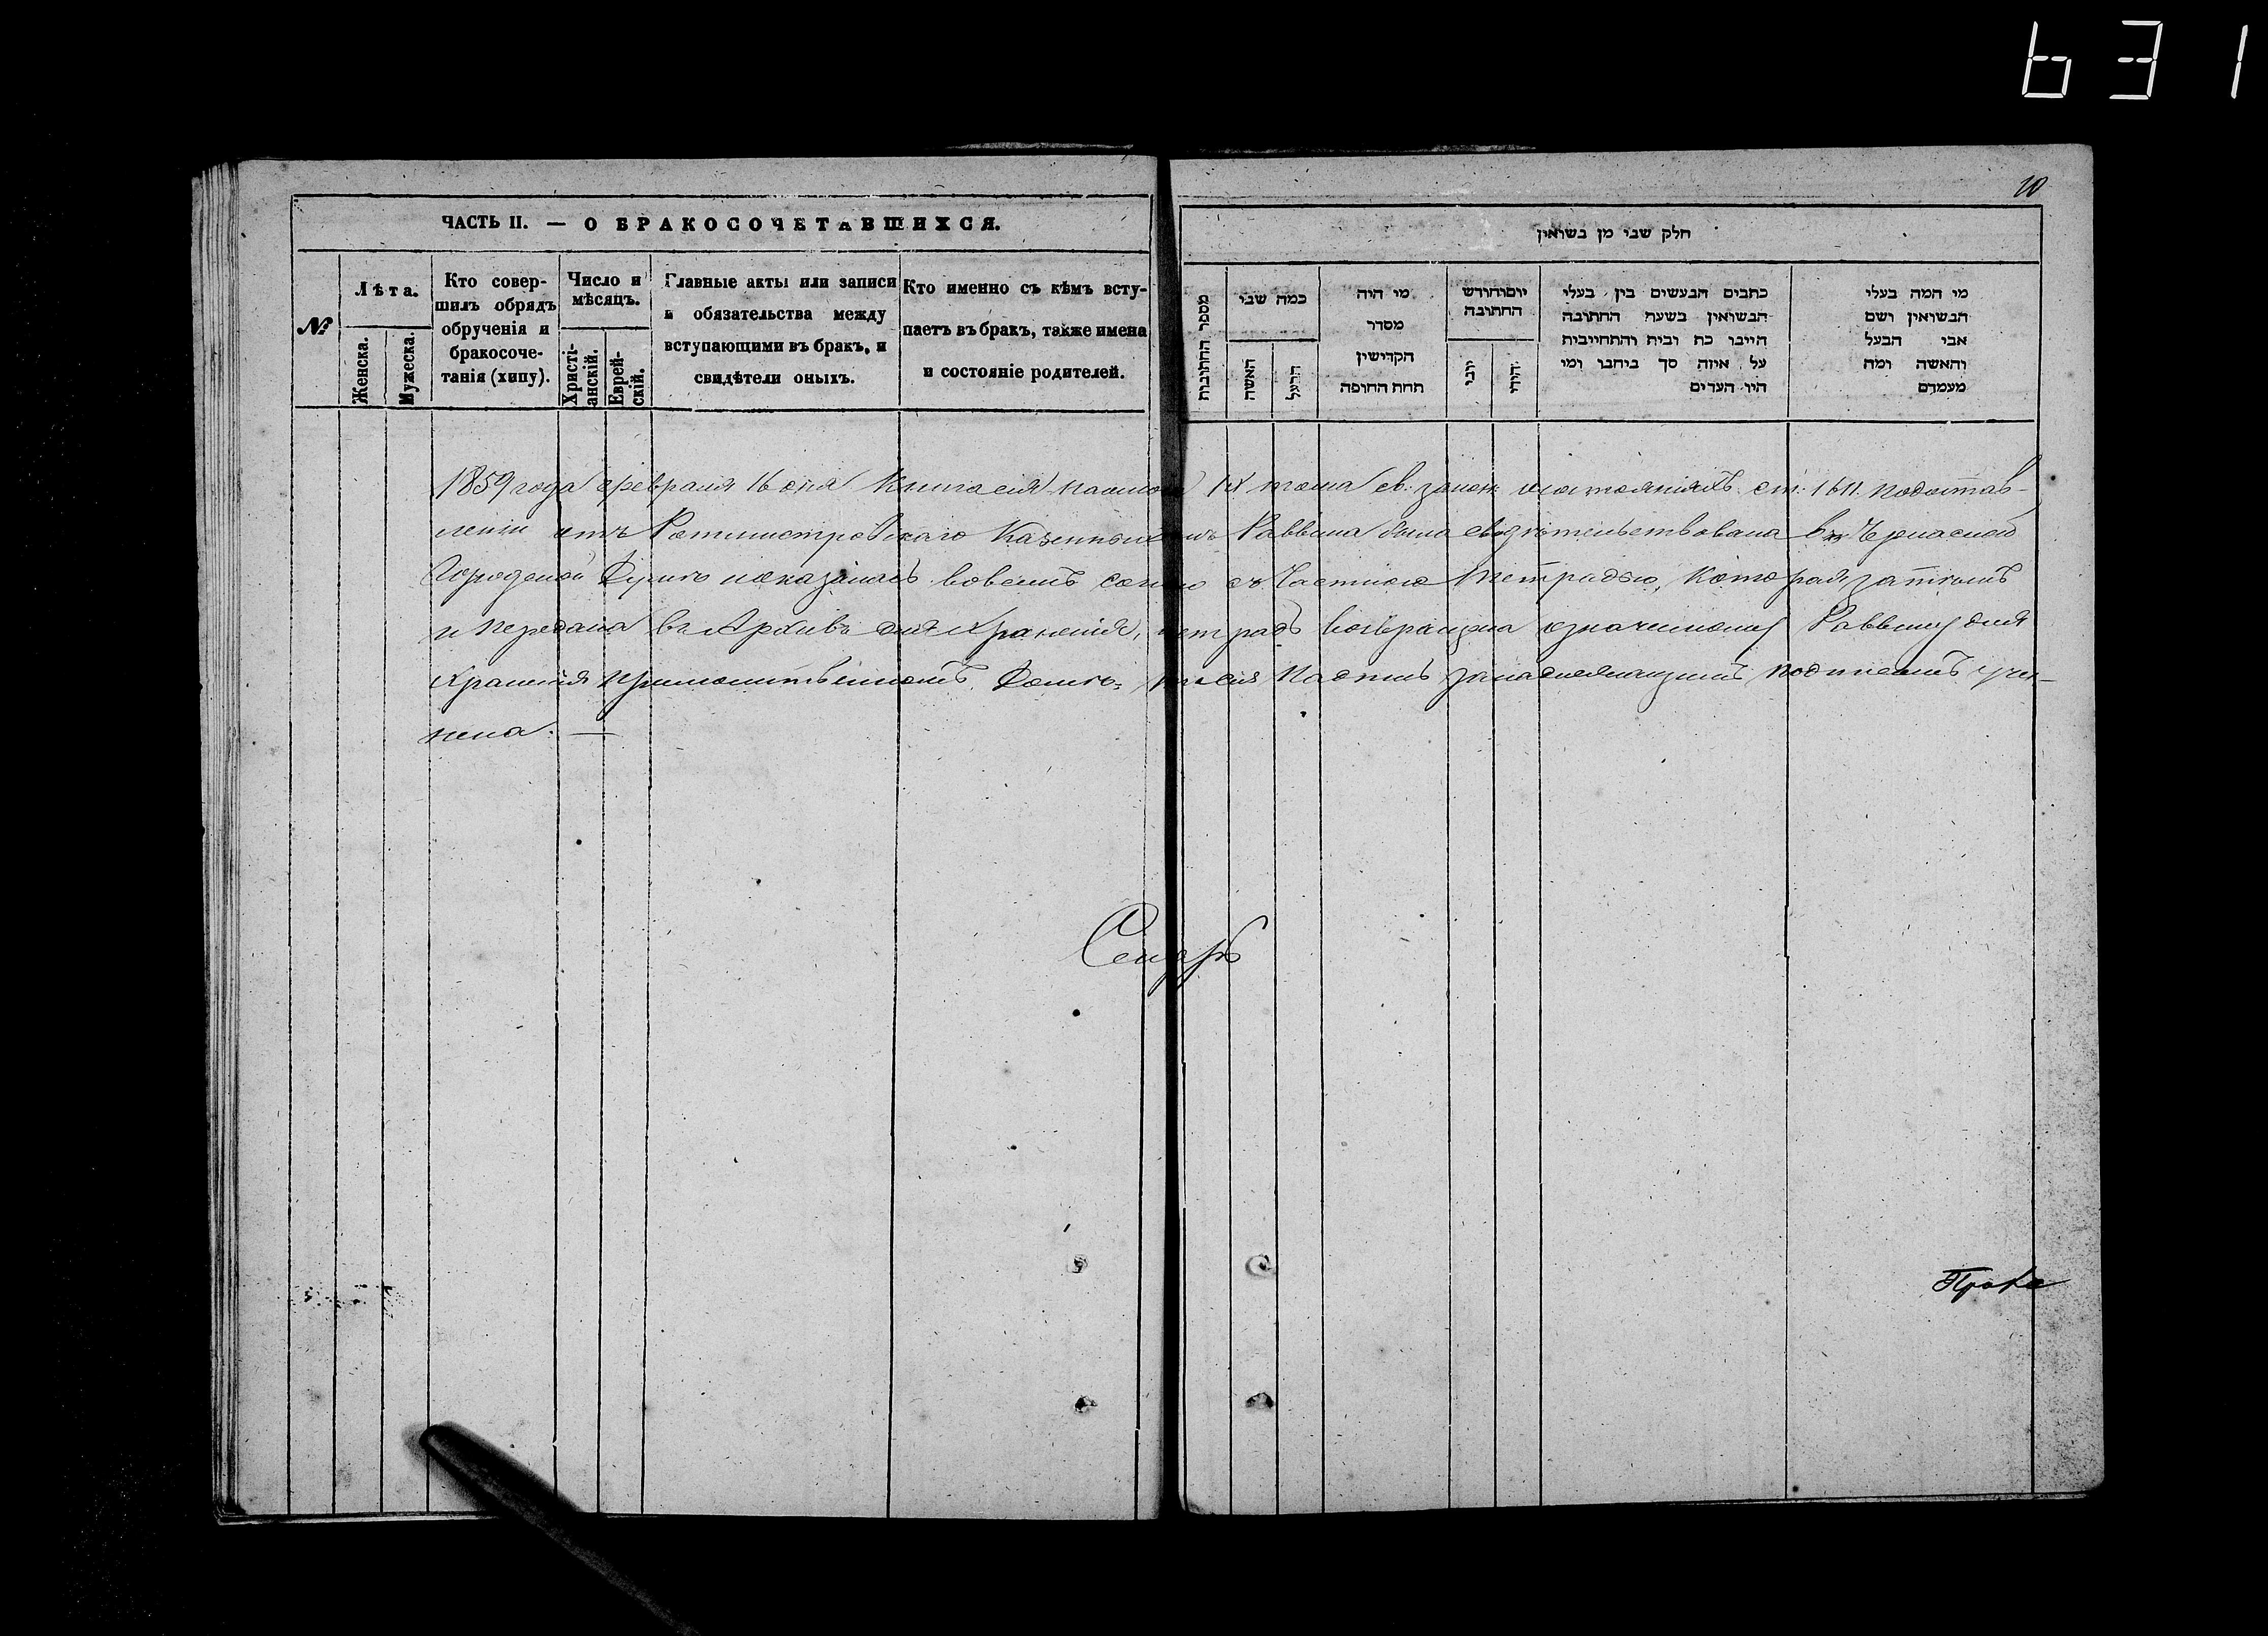 631
20
ЧАСТЬ II. — О БРАКОСОЧЕТАВШИХСЯ.
№
Лѣта.
Женска.
Мужеска.
Кто совер-
шилъ обрядъ
обрученія и
бракосоче-
танія (хипу).
Число и
мѣсяцъ.
Христі-
анскій.
Еврей-
скій.
Главные акты или записи
и обязательства между
вступающими въ бракъ, и
свидѣтели оныхъ.
Кто именно съ кѣмъ всту-
паетъ въ бракъ, также имена
и состояніе родителей.
חלק שני מן נשואין
מספר החתונות
כמה שני
האשה
הבעל
מי היה
מסדר
הקדישין
תחת החופה
יום וחודש
החתונה
יוני
יהודי
כתבים הנעשים בין בעלי
הנשואין בשעת החתונה
היינו כת ובית והתחייבות
על איזה סך ביחנו ומי
היו העדים
מי המה בעלי
הנשואין ושם
אבי הבעל
והאשה ומה
מעמדם
1859 года февраля 16 дня Книга сія IX тома св. закон: о состояніяхъ ст: 1611. подостав-
леніи отъ Ротмистровскаго Казеннаго Раввина была свидѣтельствована въ Черкаской
Городской Думѣ и оказалась во всемъ со съ Частною тетрадью, которая затѣмъ
и передана въ Архивъ для храненія, тетрадь возвращена означенному Раввину для
храненія при молитвенномъ Домѣ, сія надпись за надлежащимъ подписомъ учи-
нена. —